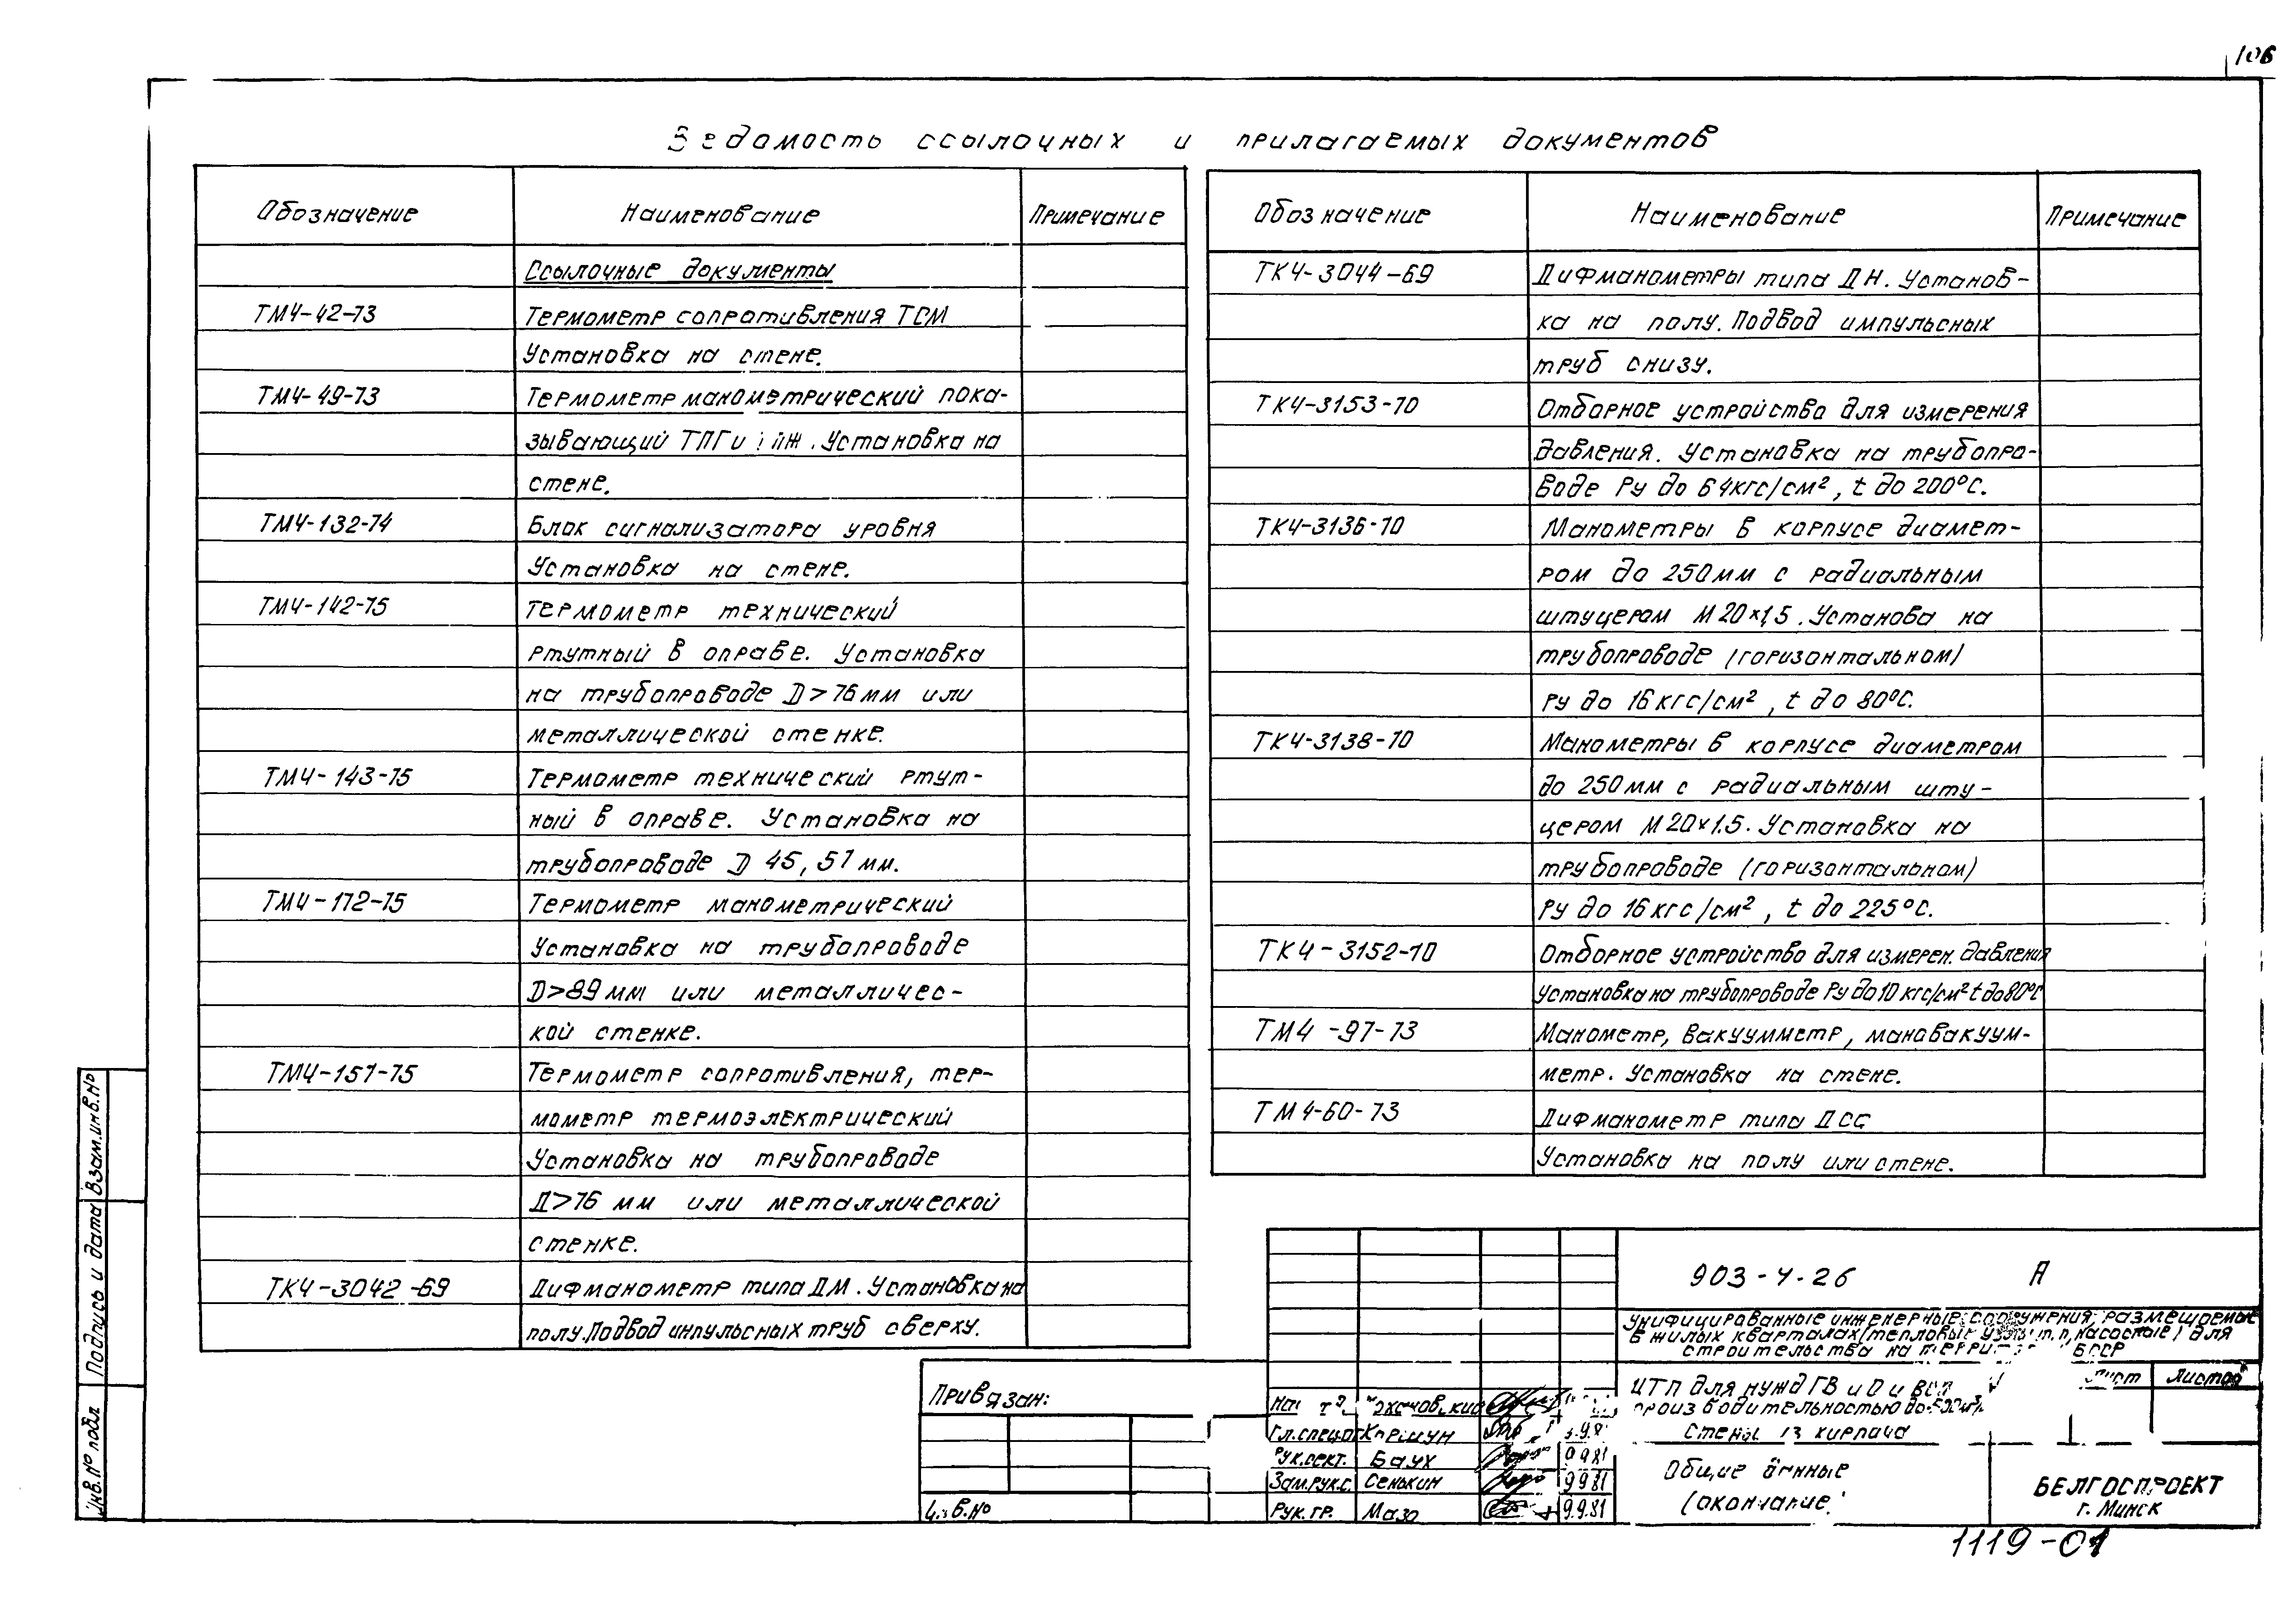 106
Ведомость ссылочных и прилагаемых документов
Обозначение Наименование Примечание
Ссылочные документы
ТМ4-42-73 Термометр сопротивления ТСМ
Установка на стене.
ТМ4-49-73 Термометр манометрический пока-
зывающий ТПГ и ПЖ. Установка на
стене.
ТМ4-132-74 Блок сигнализатора уровня
Установка на стене.
ТМ4-142-75 Термометр технический
ртутный в оправе. Установка
на трубопроводе D>76 мм или
металлической стенке.
ТМ4-143-75 Термометр технический ртут-
ный в оправе. Установка на
трубопроводе D 45, 57 мм.
ТМ4-172-75 Термометр манометрический
Установка на трубопроводе
D>89 мм или металличес-
кой стенке.
ТМ4-157-75 Термометр сопротивления, тер-
мометр термоэлектрический
Установка на трубопроводе
Д>76 мм или металлической
стенке.
ТК4-3042-69 Дифманометр типа ДМ. Установка на
полу. Подвод импульсных труб сверху.
Обозначение Наименование Примечание
ТК4-3044-69 Дифманометры типа ДН. Установ-
ка на полу. Подвод импульсных
труб снизу.
ТК4-3153-70 Отборное устройство для измерения
давления. Установка на трубопро-
воде Ру до 64 кгс/см², t до 200°С.
ТК4-3136-70 Манометры в корпусе диамет-
ром до 250 мм с радиальным
штуцером М20×1,5. Установа на
трубопроводе (горизонтальном)
Ру до 16 кгс/см², t до 80°С.
ТК4-3138-70 Манометры в корпусе диаметром
до 250 мм с радиальным шту-
цером М20×1.5. Установка на
трубопроводе (горизонтальном)
Ру до 16 кгс/см², t до 225°С.
ТК4-3152-70 Отборное устройство для измерен. давления
Установка на трубопроводе Ру до 10 кгс/см² t до 80°С
ТМ4-97-73 Манометр, вакуумметр, мановакуум-
метр. Установка на стене.
ТМ4-60-73 Дифманометр типа ДСС
Установка на полу или стене.
Взам.инв.№
Подпись и дата
Инв.№ подл
Привязан:
Инв.№
903-4-26 А
Унифицированные инженерные сооружения, размещаемые
в жилых кварталах (тепловые насосные) для
строительства на БССР
ЦТП для нужд ГВ и О и
производительностью до
Стены из кирпича
Лист Листов
Гл.спец. Коршун
Рук.сект. Баух 9.9.81
Зам.рук.с. Сенькин 9.9.81
Рук.гр. Мазо 9.9.81
Общие данные
(окончание)
БЕЛГОСПРОЕКТ
г. Минск
1119-01